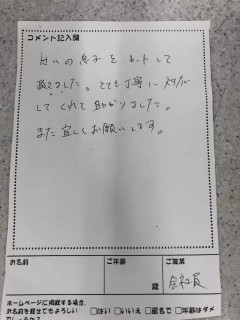 コメント記入欄
の息子をカットして
頂きました。とても丁寧に対応
してくれて助かりました。
また宜しくお願いします。
お名前
ご年齢
ご職業
歳
会社員
ホームページに掲載する場合、
お名前を載せてもよろしい
でしょうか？
□はい □いいえ □匿名で □年齢はダメ